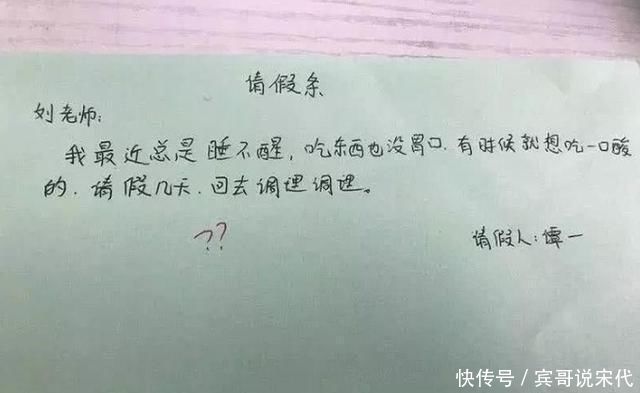 请假条
刘老师:
我最近总是睡不醒，吃东西也没胃口.有时候就想吃一口酸
的.请假几天.回去调理调理。
??
请假人:谭一
快传号/宾哥说宋代